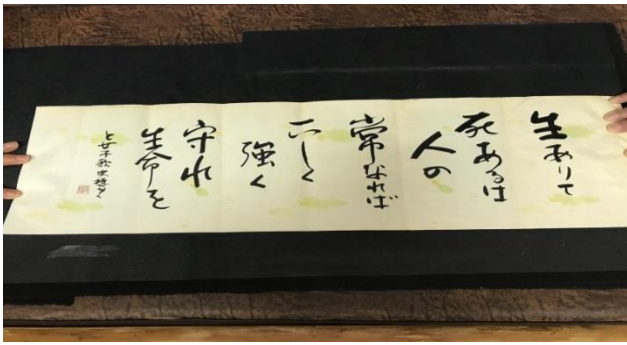 生ありて
死あるは
人の
常なれば
強く
守れ
生命を